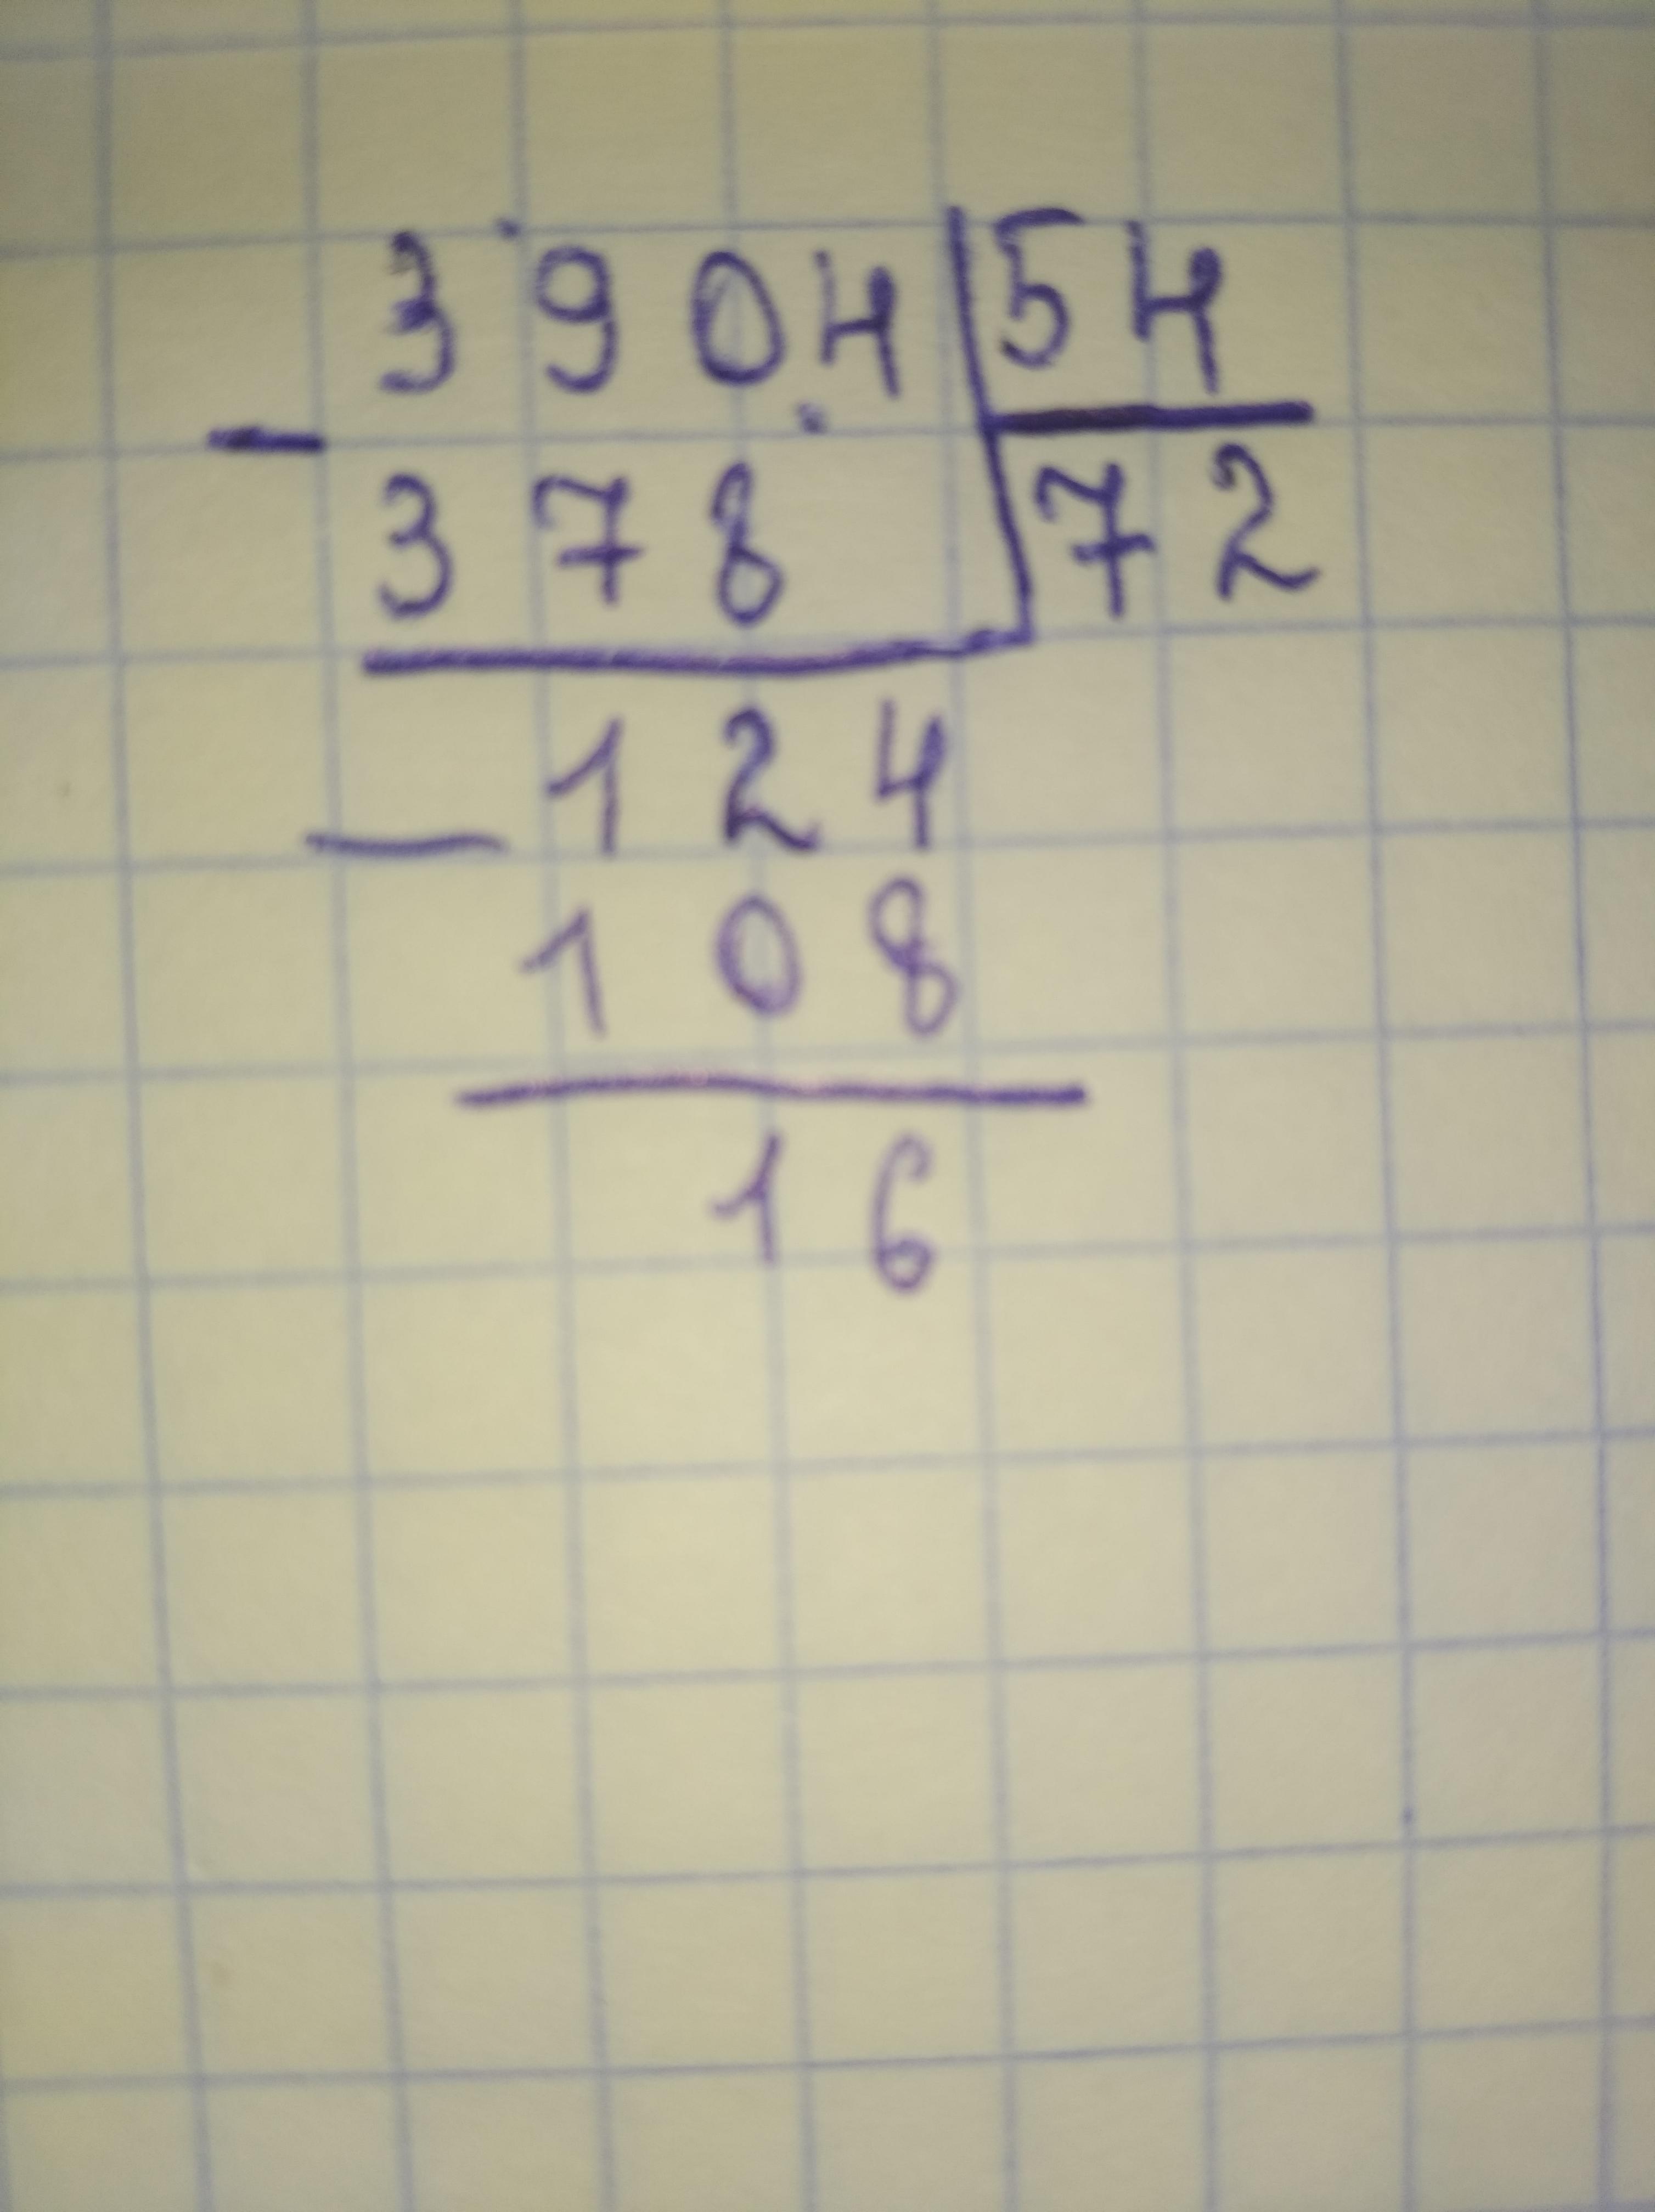 3904 | 54
- 378 | 72
- 124
108
16